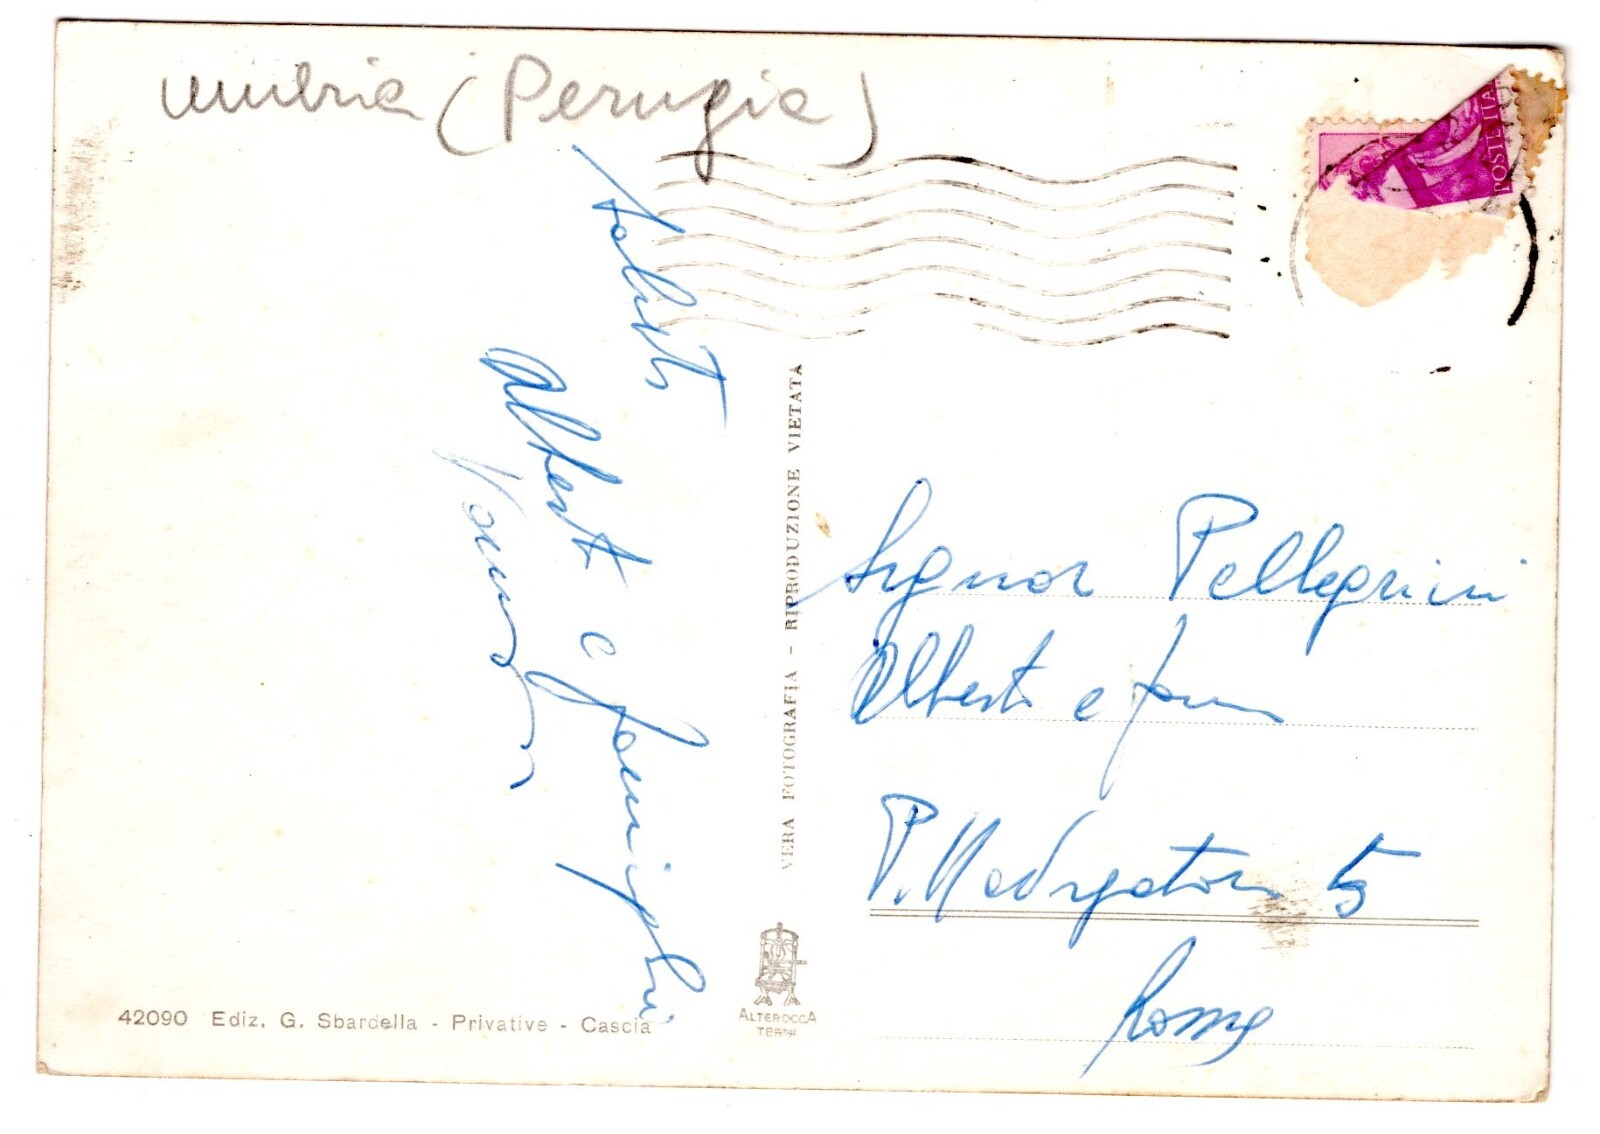 Umbria (Perugia)
POSTE ITA
Saluti
Alberto e famiglia
VERA FOTOGRAFIA - RIPRODUZIONE VIETATA
Signor Pellegrini
Alberto e fam
P. Madrgatori 5
Roma
42090 Ediz. G. Sbardella - Privative - Cascia
ALTEROCCA
TERNI